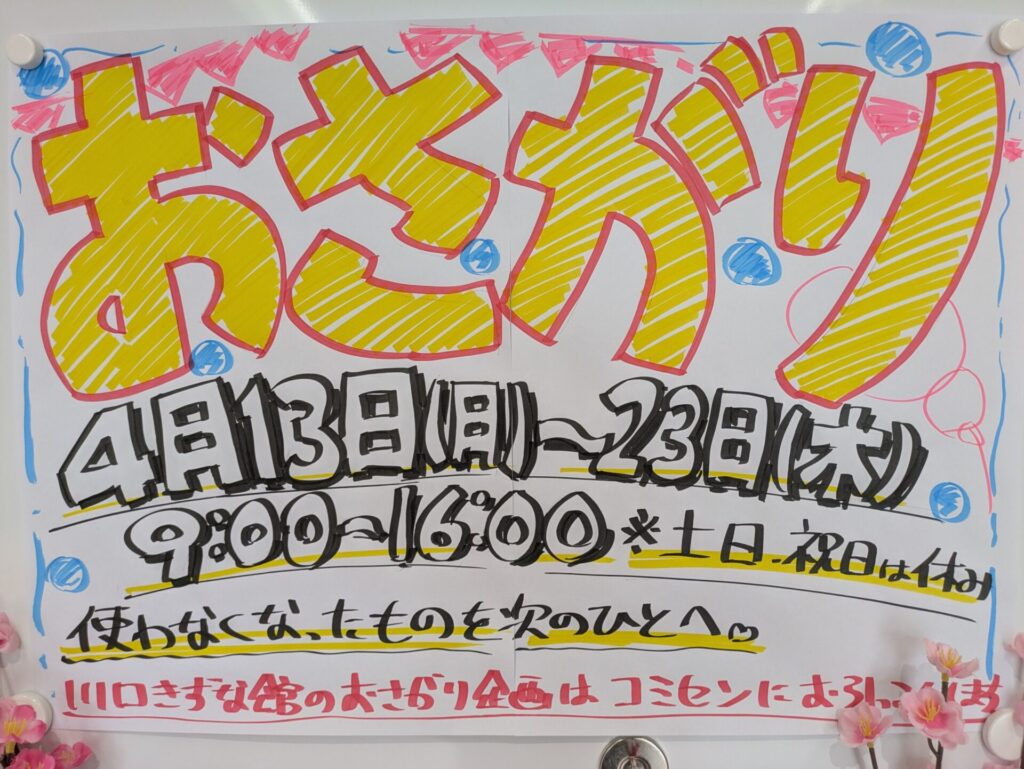 おさがり
4月13日(月)～23日(木)
9:00～16:00 ※土日・祝日は休み
使わなくなったものを次のひとへ
川口きずな館のおさがり企画はコミセンに